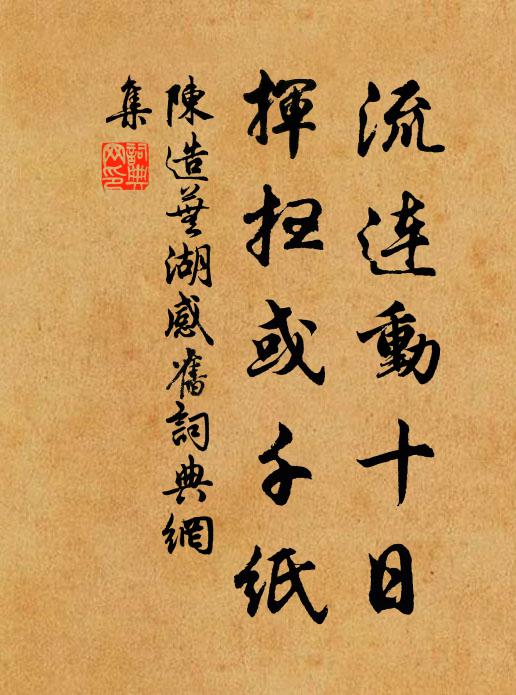 流连動十日
揮扫或千紙
陳造蕪湖感舊詞典網
集
詞典网印